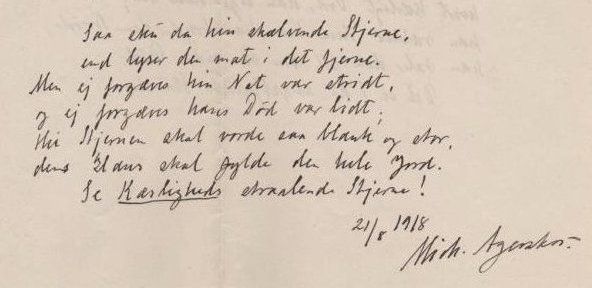 Saa skin da hin skælvende Stjerne,
end lyser den mat i det fjerne.
Men ej forgæves hin Nat var stridt,
og ej forgæves hans Død var lidt;
thi Stjernen skal vorde saa blank og stor,
dens Glans skal fylde den hele Jord.
Se Kærligheds straalende Stjerne!
21/8 1918
Mich. Agerskov.